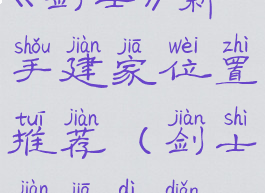 《剑士》新
shǒu jiàn jiā wèi zhì
手建家位置
tuī jiàn jiàn shì
推荐（剑士
jiàn jiā dì diǎn